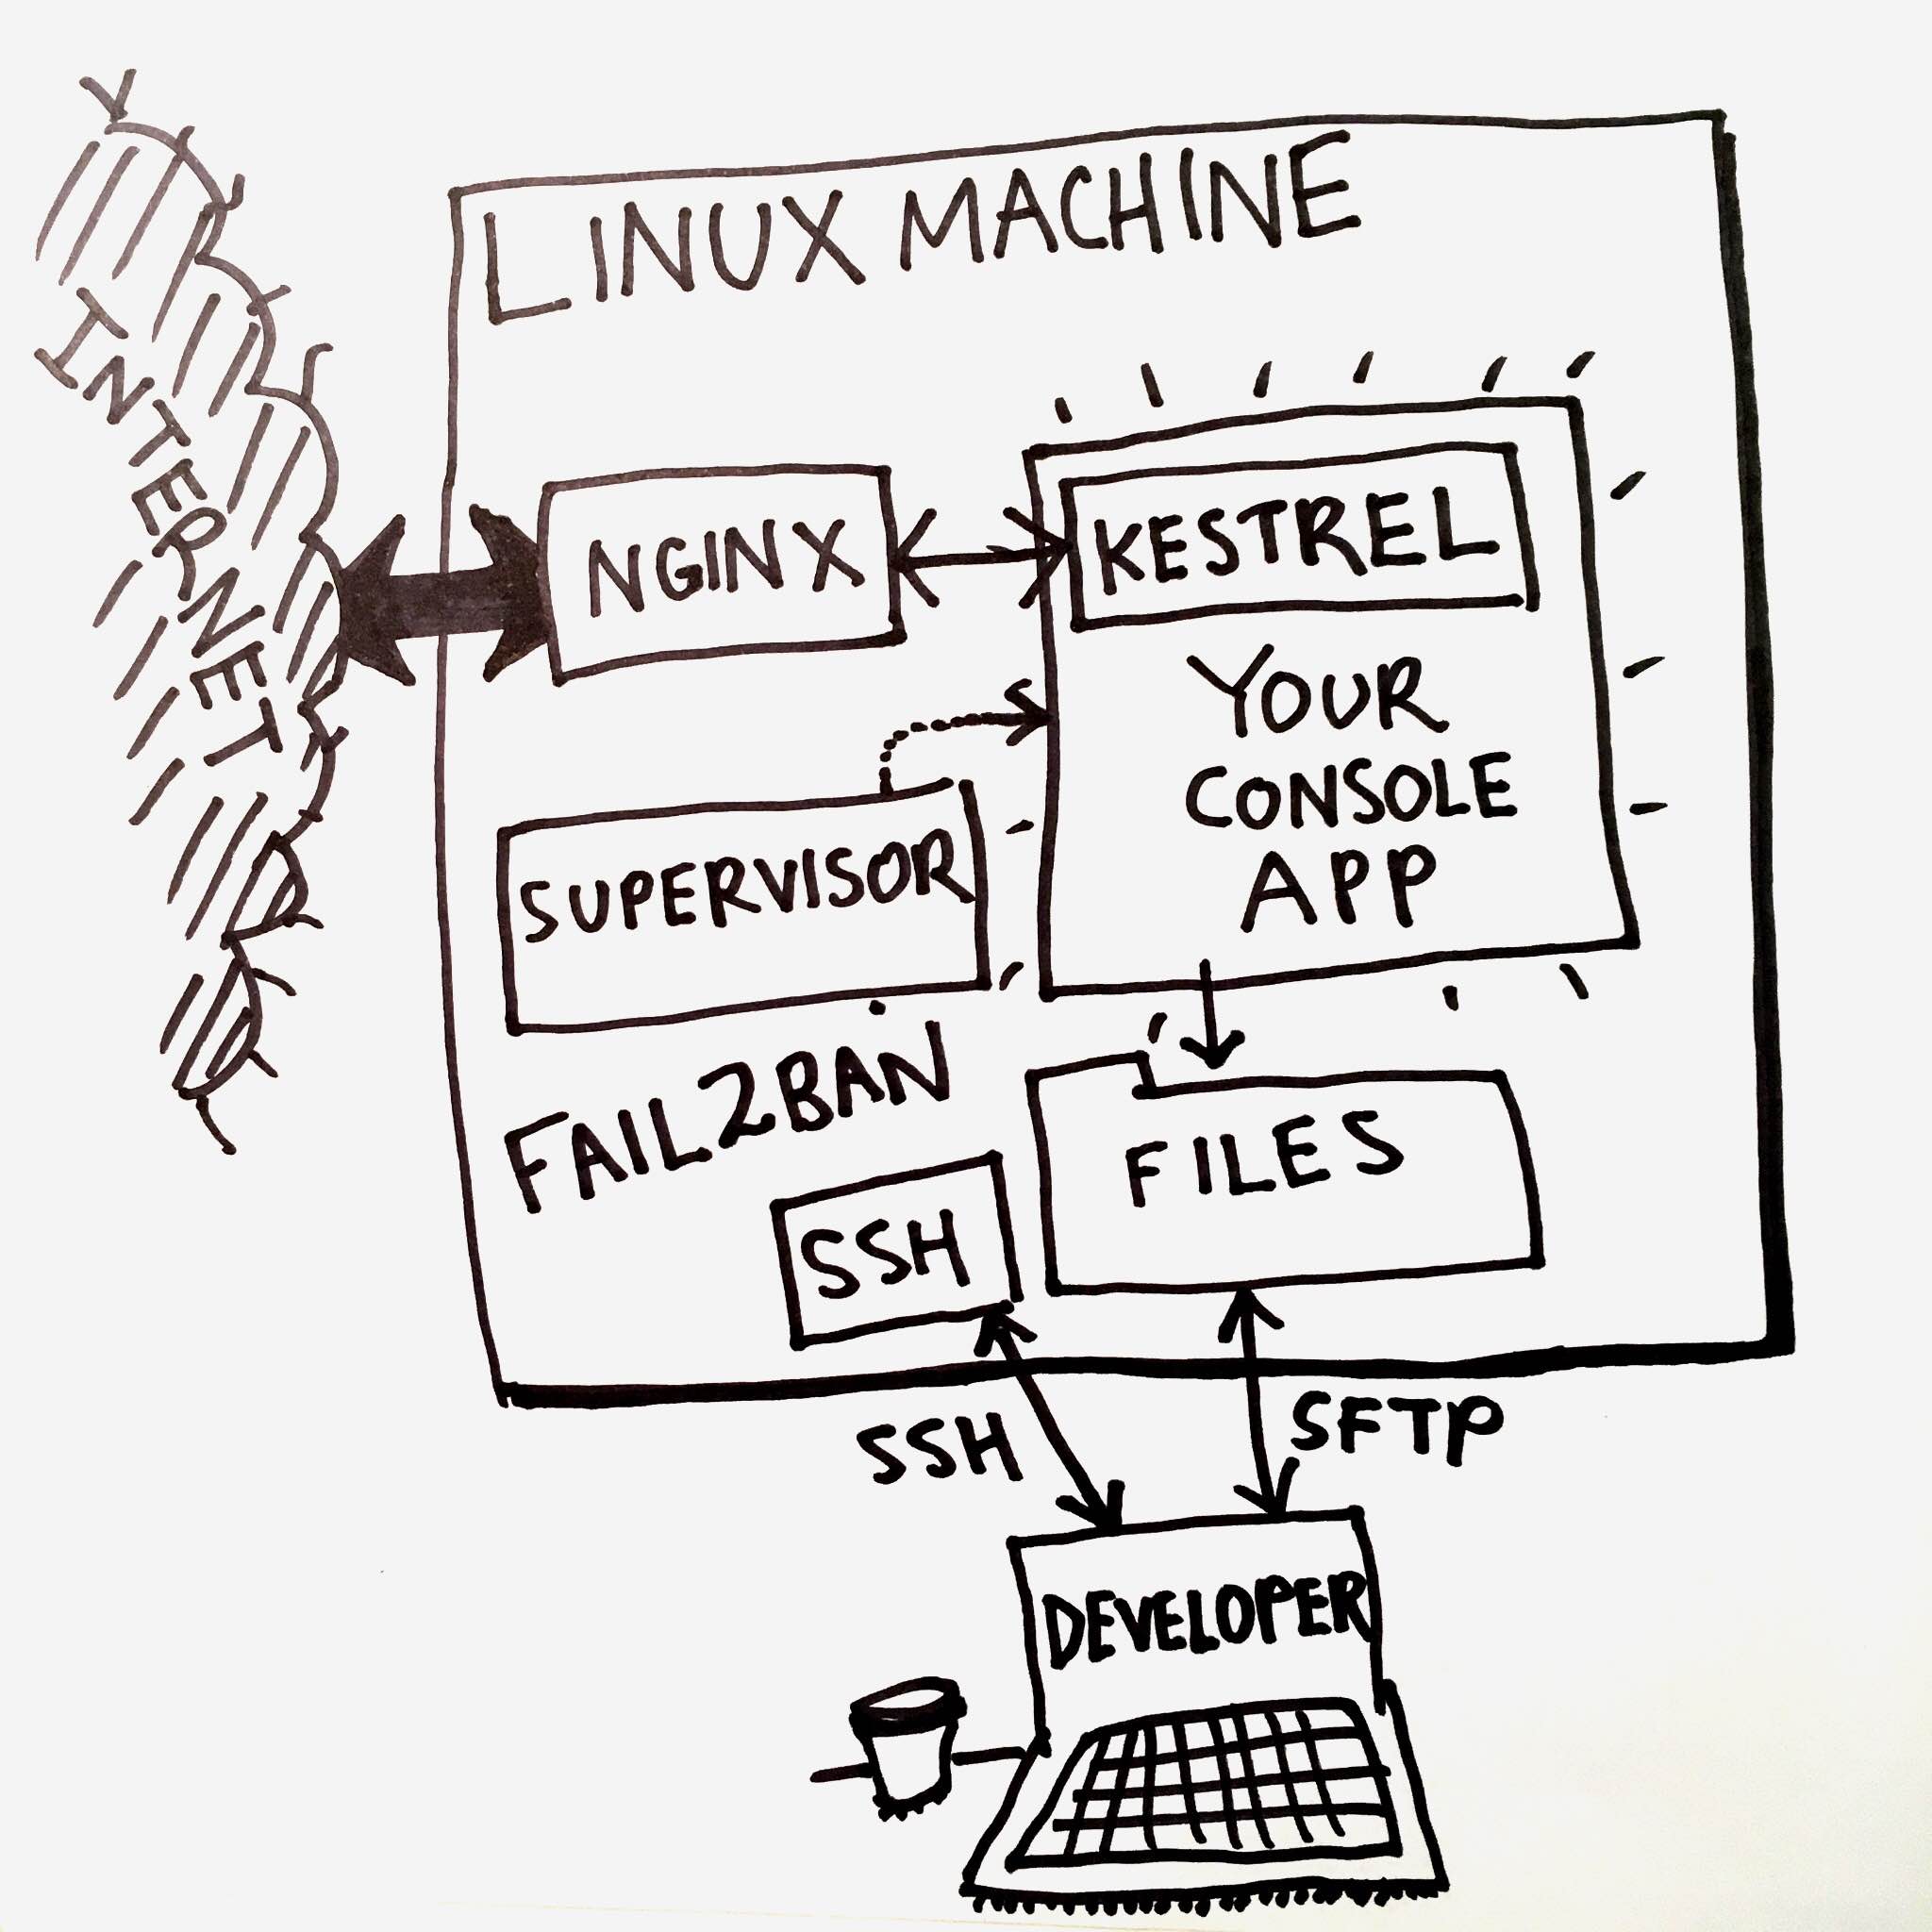 LINUX MACHINE
INTERNET
NGINX
KESTREL
YOUR
CONSOLE
APP
SUPERVISOR
FAIL2BAN
FILES
SSH
SSH
SFTP
DEVELOPER